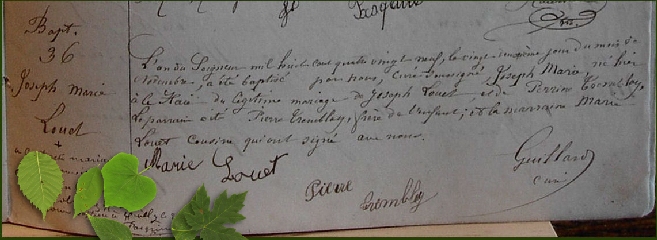 Bapt.
36
Joseph Marie
Louet
+
L'an du Seigneur mil huit cent quatre vingt neuf, le vingt deuxième jour du mois de
Novembre, a été baptisé par nous, Curé soussigné Joseph Marie, né hier
à le Haie du légitime mariage de Joseph Louet, et de Perrine Trembley,
Le parrain est Pierre Trembley, frère de l'enfant; et la marraine Marie
Louet cousine qui ont signé avec nous.
Marie Louet
Pierre Trembley
Guillard
curé